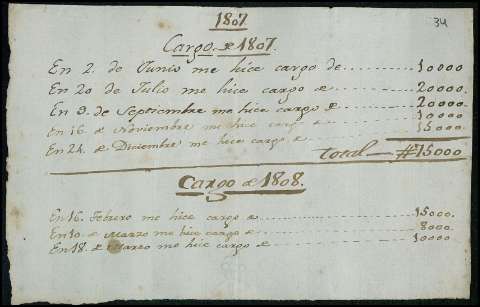 1807
34
Cargo de 1807.
En 2. de Junio me hice cargo de 10000
En 20 de Julio me hice cargo de 20000.
En 9. de Septiembre me hice cargo de 20000
En 16 de Noviembre me hice cargo de 10000
En 24. de Diciembre me hice cargo de 15000
total — #75000
Cargo de 1808.
En 16. Febrero me hice cargo de 15000.
En 10. de Marzo me hice cargo de 8000.
En 18. de Marzo me hice cargo de 10000